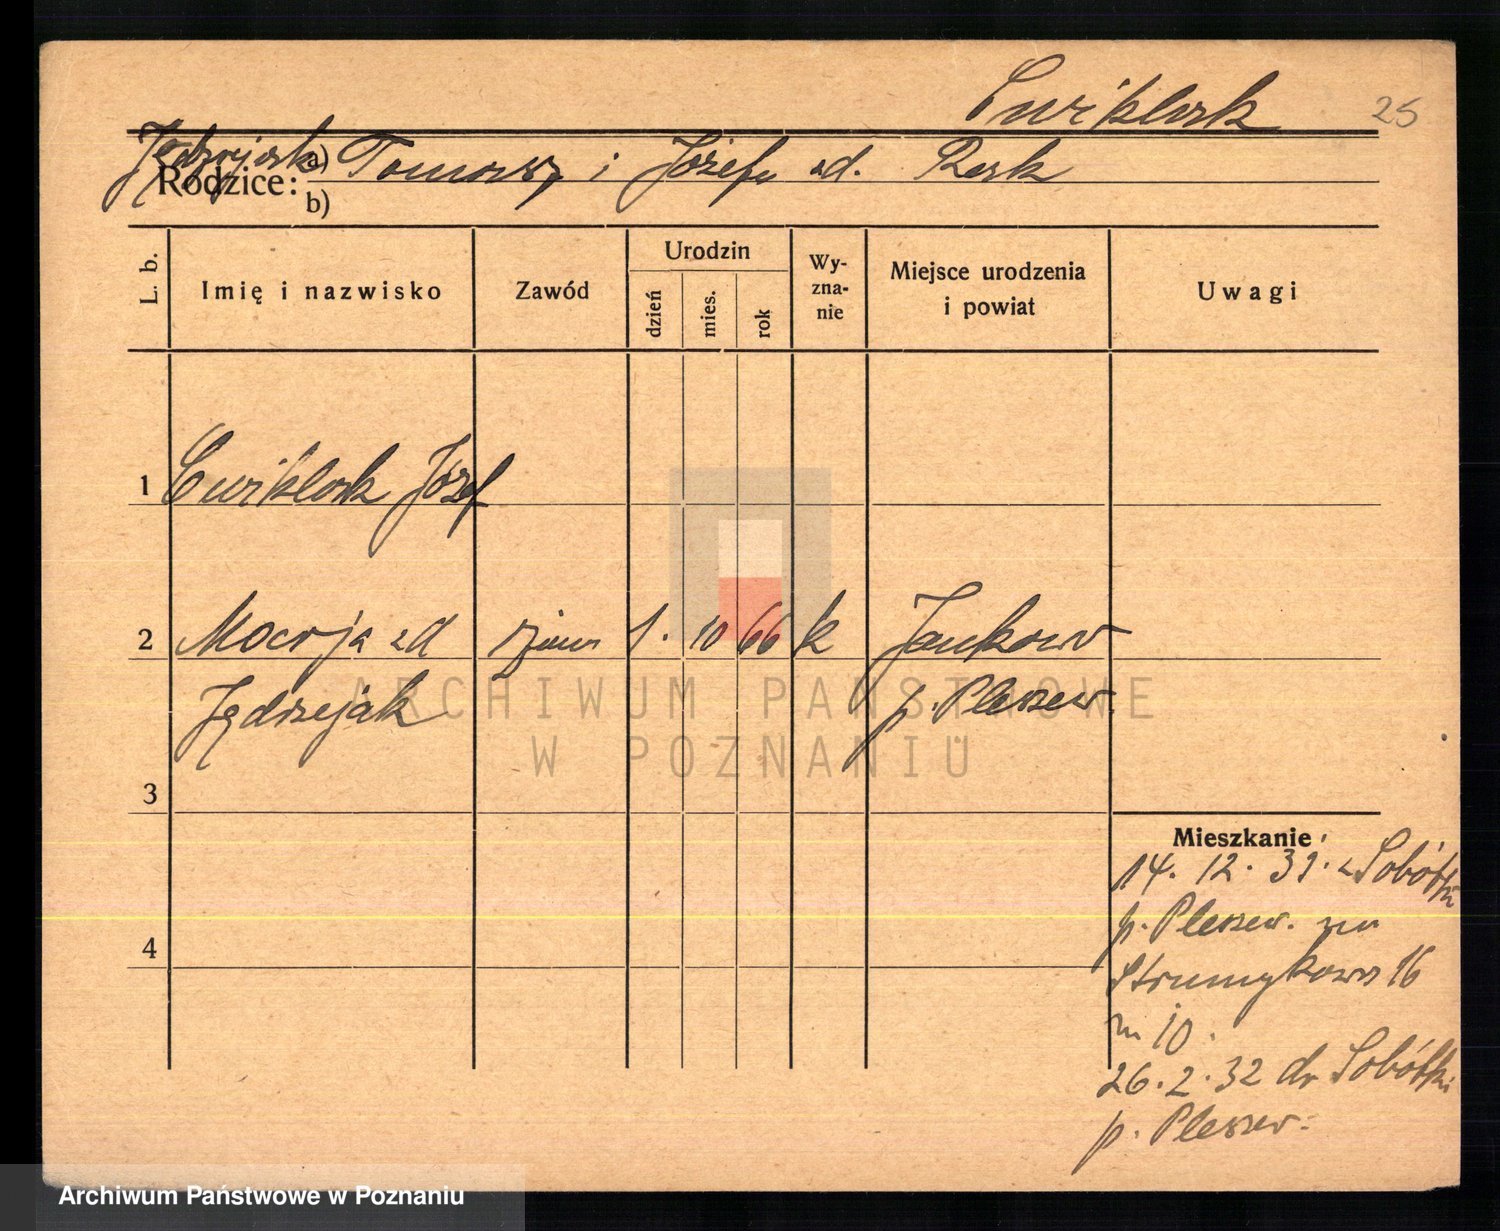 Ćwiklak 25
Jędrzejak Tomasz i Józefa zd. Rak
Rodzice: a)
b)
L. b. Imię i nazwisko Zawód Urodzin dzień mies. rok Wy-zna-nie Miejsce urodzenia i powiat Uwagi
1 Ćwiklak Józef
2 Marja zd żona 1. 10 66 k Jankow
Jędrzejak p. Pleszew.
ARCHIWUM PAŃSTWOWE
W POZNANIU
3
Mieszkanie:
14. 12. 31. z Sobótki
p. Pleszew. na
Strumykowa 16
m 10.
4
26. 2. 32 do Sobótki
p. Pleszew.
Archiwum Państwowe w Poznaniu